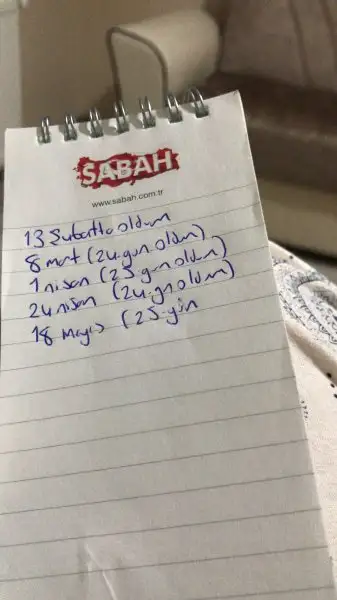 SABAH
www.sabah.com.tr
13 Şubatta oldum
8 mart (24.gün oldum)
1 nisan (25.gün oldum)
24 nisan (24.gn oldum)
18 Mayıs (25.gün